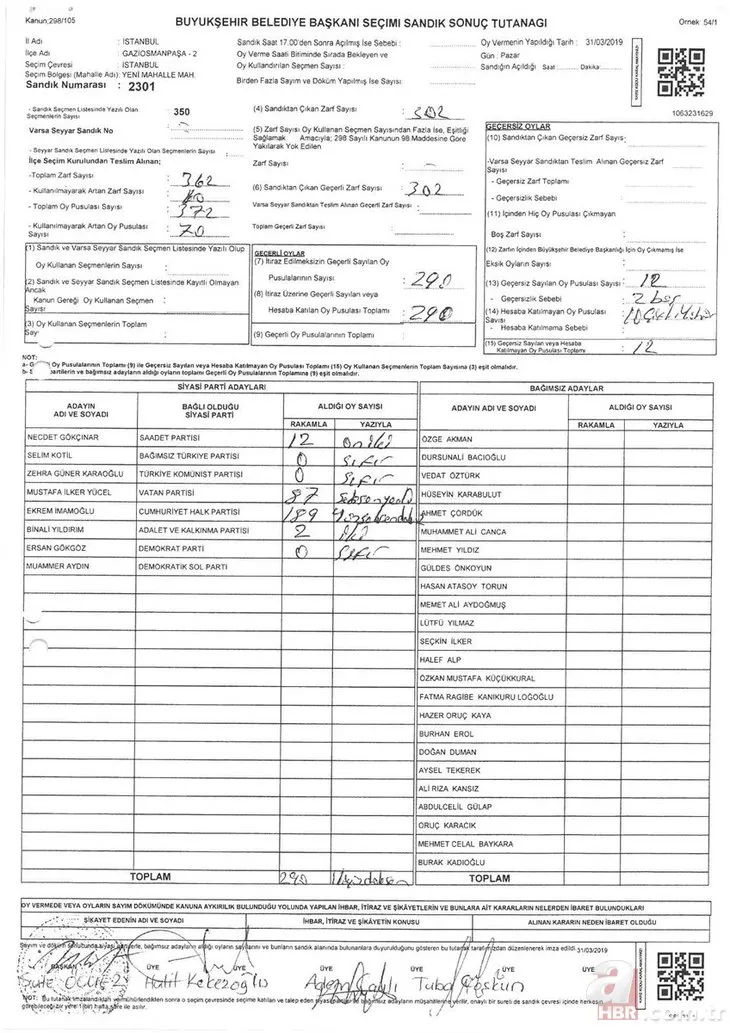 Kanun,298/105
BÜYÜKŞEHİR BELEDİYE BAŞKANI SEÇİMİ SANDIK SONUÇ TUTANAĞI
Örnek: 54/1
İl Adı : İSTANBUL
İlçe Adı : GAZİOSMANPAŞA - 2
Seçim Çevresi : İSTANBUL
Seçim Bölgesi (Mahalle Adı): YENİ MAHALLE MAH.
Sandık Numarası : 2301
Sandık Saat 17.00'den Sonra Açılmış İse Sebebi :
Oy Verme Saati Bitiminde Sırada Bekleyen ve
Oy Kullandırılan Seçmen Sayısı :
Birden Fazla Sayım ve Döküm Yapılmış İse Sayısı:
Oy Vermenin Yapıldığı Tarih : 31/03/2019
Gün : Pazar
Sandığın Açıldığı Saat : Dakika:
1063231629
- Sandık Seçmen Listesinde Yazılı Olan
Seçmenlerin Sayısı : 350
Varsa Seyyar Sandık No
- Seyyar Sandık Seçmen Listesinde Yazılı Olan Seçmenlerin Sayısı :
İlçe Seçim Kurulundan Teslim Alınan;
-Toplam Zarf Sayısı : 362
- Kullanılmayarak Artan Zarf Sayısı :
- Toplam Oy Pusulası Sayısı : 372
- Kullanılmayarak Artan Oy Pusulası
Sayısı : 70
(4) Sandıktan Çıkan Zarf Sayısı : 302
(5) Zarf Sayısı Oy Kullanan Seçmen Sayısından Fazla İse, Eşitliği
Sağlamak Amacıyla; 298 Sayılı Kanunun 98 Maddesine Göre
Yakılarak Yok Edilen
Zarf Sayısı :
(6) Sandıktan Çıkan Geçerli Zarf Sayısı : 302
Varsa Seyyar Sandıktan Teslim Alınan Geçerli Zarf Sayısı :
Toplam Geçerli Zarf Sayısı :
GEÇERSİZ OYLAR
(10) Sandıktan Çıkan Geçersiz Zarf Sayısı:
-Varsa Seyyar Sandıktan Teslim Alınan Geçersiz Zarf
Sayısı :
- Geçersiz Zarf Toplamı :
- Geçersizlik Sebebi :
(11) İçinden Hiç Oy Pusulası Çıkmayan
Boş Zarf Sayısı :
(12) Zarfın İçinden Büyükşehir Belediye Başkanlığı İçin Oy Çıkmamış İse
Eksik Oyların Sayısı :
(13) Geçersiz Sayılan Oy Pusulası Sayısı : 12
- Geçersizlik Sebebi : 2 boş
(14) Hesaba Katılmayan Oy Pusulası
Sayısı : 10
- Hesaba Katılmama Sebebi :
(15) Geçersiz Sayılan veya Hesaba
Katılmayan Oy Pusulası Toplamı : 12
(1) Sandık ve Varsa Seyyar Sandık Seçmen Listesinde Yazılı Olup
Oy Kullanan Seçmenlerin Sayısı :
(2) Sandık ve Seyyar Sandık Seçmen Listesinde Kayıtlı Olmayan
Ancak
Kanun Gereği Oy Kullanan Seçmen :
Sayısı
(3) Oy Kullanan Seçmenlerin Toplam
Sayısı :
GEÇERLİ OYLAR
(7) İtiraz Edilmeksizin Geçerli Sayılan Oy
Pusulalarının Sayısı : 290
(8) İtiraz Üzerine Geçerli Sayılan veya
Hesaba Katılan Oy Pusulaları Toplamı : 290
(9) Geçerli Oy Pusulalarının Toplamı :
NOT:
a- Oy Pusulalarının Toplamı (9) ile Geçersiz Sayılan veya Hesaba Katılmayan Oy Pusulası Toplamı (15) Oy Kullanan Seçmenlerin Toplam Sayısına (3) eşit olmalıdır.
b- S partilerin ve bağımsız adayların aldığı oyların toplamı Geçerli Oy Pusulalarının Toplamına (9) eşit olmalıdır.
SİYASİ PARTİ ADAYLARI
ADAYIN ADI VE SOYADI BAĞLI OLDUĞU SİYASİ PARTİ ALDIĞI OY SAYISI
RAKAMLA YAZIYLA
NECDET GÖKÇINAR SAADET PARTİSİ 12 on iki
SELİM KOTİL BAĞIMSIZ TÜRKİYE PARTİSİ 0 sıfır
ZEHRA GÜNER KARAOĞLU TÜRKİYE KOMÜNİST PARTİSİ 0 sıfır
MUSTAFA İLKER YÜCEL VATAN PARTİSİ 87 seksenyedi
EKREM İMAMOĞLU CUMHURİYET HALK PARTİSİ 189 yüzseksendokuz
BİNALİ YILDIRIM ADALET VE KALKINMA PARTİSİ 2 iki
ERSAN GÖKGÖZ DEMOKRAT PARTİ 0 sıfır
MUAMMER AYDIN DEMOKRATİK SOL PARTİ
TOPLAM 290
BAĞIMSIZ ADAYLAR
ADAYIN ADI VE SOYADI ALDIĞI OY SAYISI
RAKAMLA YAZIYLA
ÖZGE AKMAN
DURSUNALİ BACIOĞLU
VEDAT ÖZTÜRK
HÜSEYİN KARABULUT
AHMET ÇORDÜK
MUHAMMET ALİ CANCA
MEHMET YILDIZ
GÜLDES ÖNKOYUN
HASAN ATASOY TORUN
MEMET ALİ AYDOĞMUŞ
LÜTFÜ YILMAZ
SEÇKİN İLKER
HALEF ALP
ÖZKAN MUSTAFA KÜÇÜKKURAL
FATMA RAGİBE KANIKURU LOĞOĞLU
HAZER ORUÇ KAYA
BURHAN EROL
DOĞAN DUMAN
AYSEL TEKEREK
ALİ RIZA KANSIZ
ABDULCELİL GÜLAP
ORUÇ KARACIK
MEHMET CELAL BAYKARA
BURAK KADIOĞLU
TOPLAM
OY VERMEDE VEYA OYLARIN SAYIM DÖKÜMÜNDE KANUNA AYKIRILIK BULUNDUĞU YOLUNDA YAPILAN İHBAR, İTİRAZ VE ŞİKAYETLERİN VE BUNLARA AİT KARARLARIN NELERDEN İBARET BULUNDUKLARI
ŞİKAYET EDENİN ADI VE SOYADI İHBAR, İTİRAZ VE ŞİKAYETİN KONUSU ALINAN KARARIN NEDEN İBARET OLDUĞU
Sayım ve döküm sonucunda siyasi partilerle, bağımsız adayların aldığı oyların sayılarını ve bunların sandık alanında bulunanlara duyurulduğunu gösteren bu tutanak tarafımızdan düzenlenerek imza edildi 31/03/2019
BAŞKAN ÜYE ÜYE ÜYE ÜYE ÜYE
Halit Kebezoğlu
Tuba Coşkun
a
HBR.com.tr